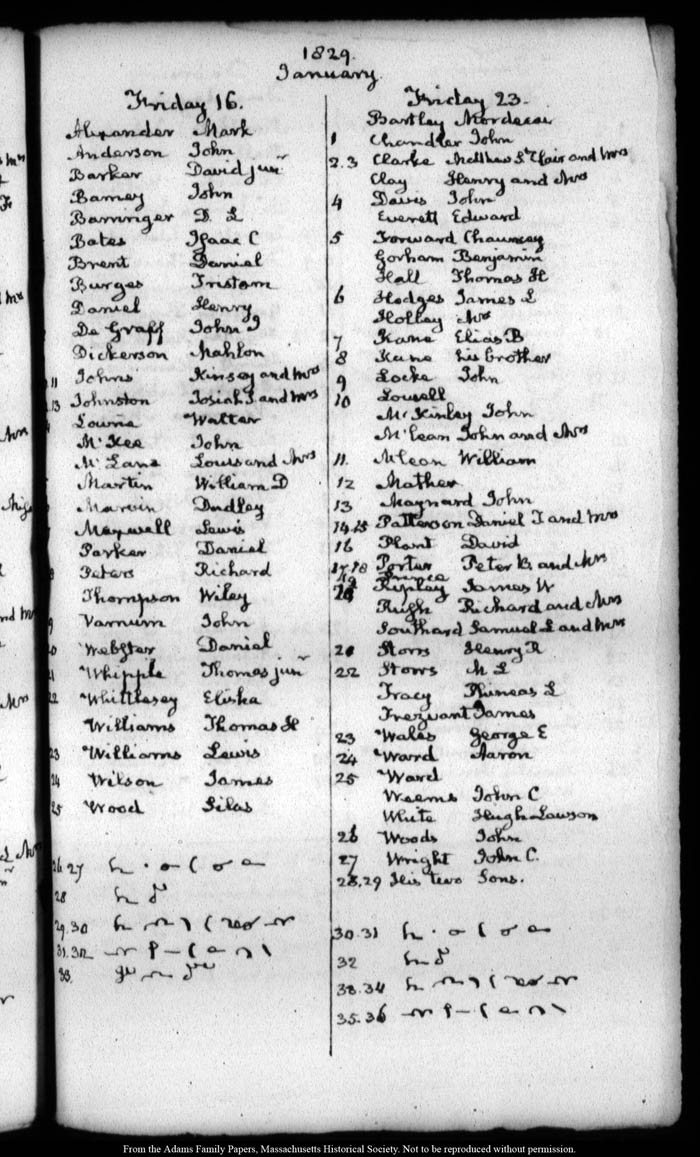 1829.
January.
Friday 16.
Alexander Mark
Anderson John
Barker David junr
Barney John
Barringer D. L
Bates Isaac C
Brent Daniel
Burges Tristam
Daniel Henry
De Graff John I
Dickerson Mahlon
11 Johns Kinsey and Mrs
13 Johnston Josiah S. and Mrs
Lowrie Walter
McKee John
McLane Louis and Mrs
Martin William D
Marvin Dudley
Maxwell Lewis
Parker Daniel
Peters Richard
Thompson Wiley
Varnum John
Webster Daniel
Whipple Thomas junr
22 Whittlesey Elisha
Williams Thomas H
23 Williams Lewis
24 Wilson James
25 Wood Silas
26.27
28
29.30
31.32
33.
Friday 23.
Bartley Mordecai
1 Chandler John
2.3 Clarke Matthew St Clair and Mrs
Clay Henry and Mrs
4 Davis John
Everett Edward
5 Forward Chauncey
Gorham Benjamin
Hall Thomas H
6 Hodges James L
Holley Mrs
7 Kane Elias B
8 Kane his brother
9 Locke John
10 Lowell
McKinley John
McLean John and Mrs
11. McLean William
12 Mather
13 Maynard John
14.15 Patterson Daniel T and Mrs
16 Plant David
17.18 Porter Peter B. and Mrs
19
Ripley James W
Rush Richard and Mrs
Southard Samuel L and Mrs
Storrs Henry R
22 Storrs M L
Tracy Phineas L
Trezvant James
23 Wales George E
24 Ward Aaron
25 Ward
Weems John C
White Hugh Lawson
26 Woods John
27 Wright John C.
28.29 His two Sons.
30.31
32
33.34
35.36
From the Adams Family Papers, Massachusetts Historical Society. Not to be reproduced without permission.